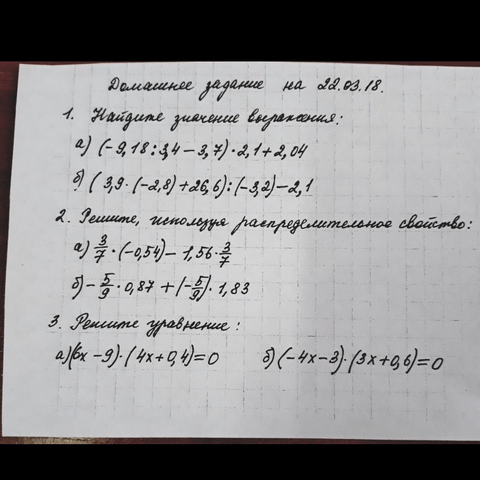 Домашнее задание на 22.03.18.
1. Найдите значение выражения:
а) (-9,18 : 3,4 - 3,7) · 2,1 + 2,04
б) (3,9 · (-2,8) + 26,6) : (-3,2) - 2,1
2. Решите, используя распределительное свойство:
а) 3/7 · (-0,54) - 1,56 · 3/7
б) - 5/9 · 0,87 + (-5/9) · 1,83
3. Решите уравнение:
а) (6x - 9) · (4x + 0,4) = 0 б) (-4x - 3) · (3x + 0,6) = 0